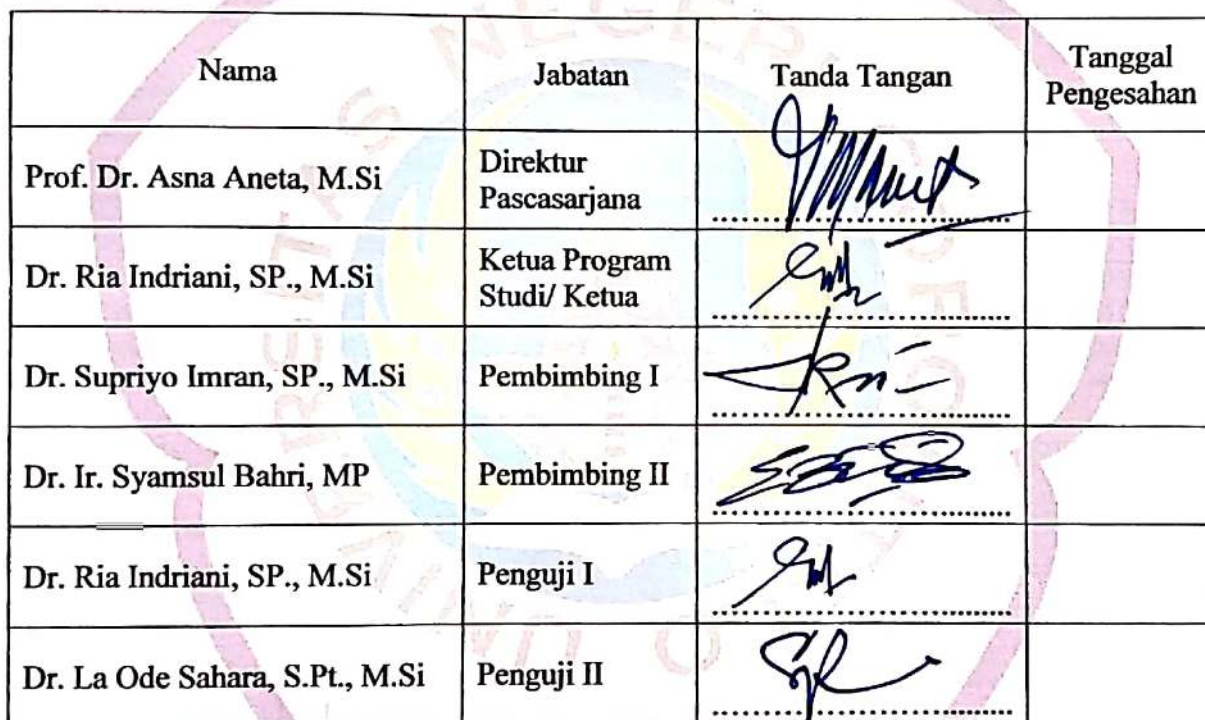 Nama Jabatan Tanda Tangan Tanggal Pengesahan
Prof. Dr. Asna Aneta, M.Si Direktur Pascasarjana
Dr. Ria Indriani, SP., M.Si Ketua Program Studi/ Ketua
Dr. Supriyo Imran, SP., M.Si Pembimbing I
Dr. Ir. Syamsul Bahri, MP Pembimbing II
Dr. Ria Indriani, SP., M.Si Penguji I
Dr. La Ode Sahara, S.Pt., M.Si Penguji II